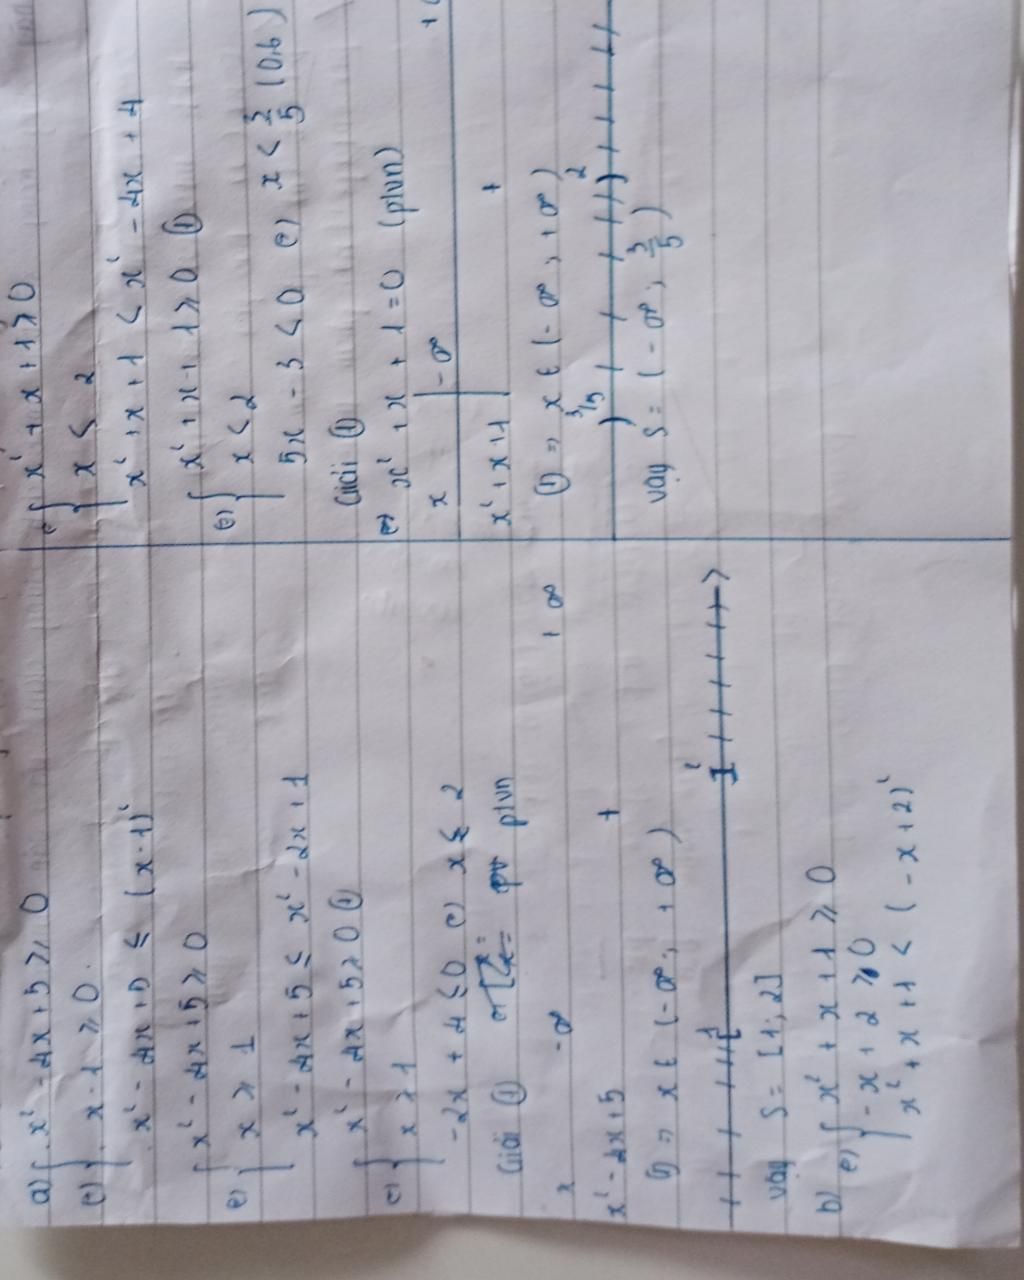 a) { x² - 4x + 5 ≥ 0
(e) { x - 1 ≥ 0.
x² - 4x + 5 ≤ (x - 1)²
{ x² - 4x + 5 ≥ 0
(e) { x ≥ 1
x² - 4x + 5 ≤ x² - 2x + 1
{ x² - 4x + 5 ≥ 0 ①
(e) { x ≥ 1
-2x + 4 ≤ 0 (e) x ≤ 2
Giải ① ptvn
x -∞ +∞
x² - 4x + 5 +
① => x ∈ (-∞; +∞)
1 2
vậy S = [1; 2]
b) { x² + x + 1 ≥ 0
(e) { -x + 2 ≥ 0
x² + x + 1 < (-x + 2)²
(e) { x² + x + 1 ≥ 0
{ x ≤ 2
x² + x + 1 < x² - 4x + 4
{ x² + x + 1 ≥ 0 ①
(e) { x < 2
5x - 3 < 0 (e) x < 3/5 (0,6)
Giải ①
(e) x² + x + 1 = 0 (ptvn)
x -∞
x² + x + 1 +
① => x ∈ (-∞; +∞)
3/5 2
vậy S = (-∞; 3/5)